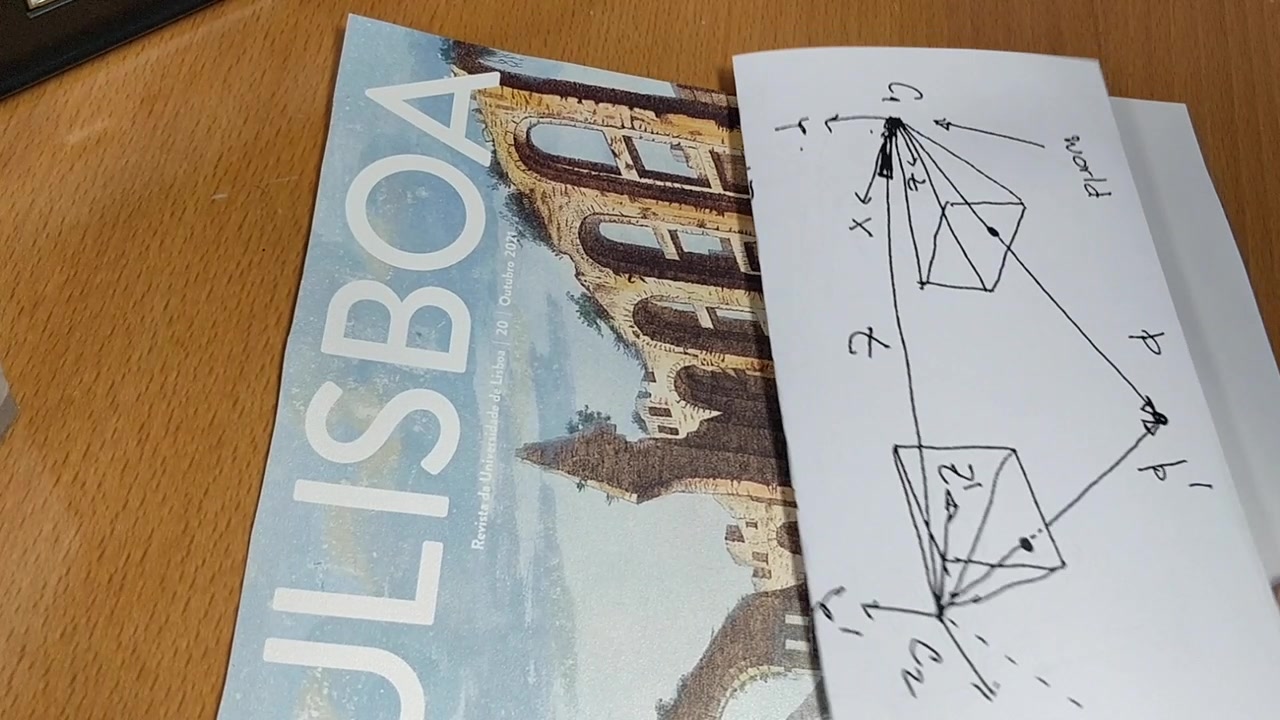 ULISBOA
Revista da Universidade de Lisboa | 20 | Outubro 2021
C1
world
Y
z
x
t
p
p'
z'
y'
C2